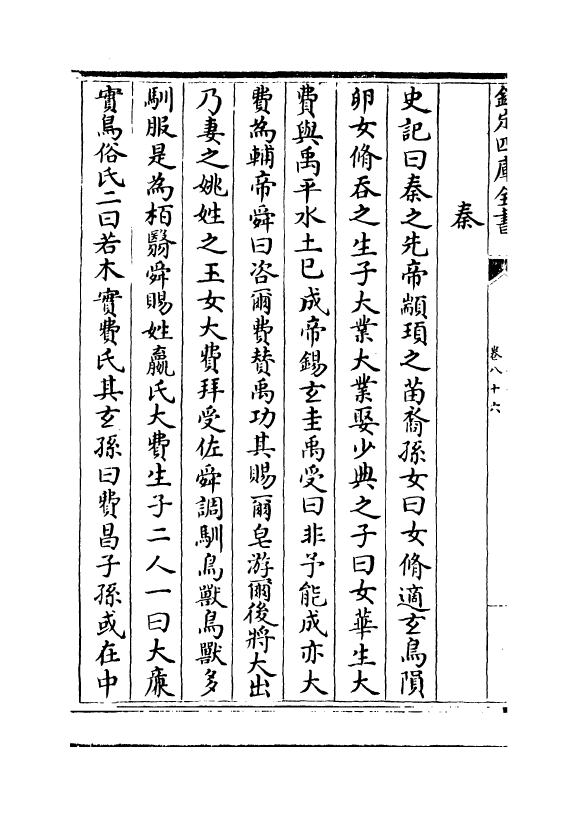 欽定四庫全書
卷八十六
秦
史記曰秦之先帝顓頊之苗裔孫女曰女脩適玄鳥隕
卵女脩吞之生子大業大業娶少典之子曰女華生大
費與禹平水土已成帝錫玄圭禹受曰非予能成亦大
費為輔帝舜曰咨爾費賛禹功其賜爾皂游爾後將大出
乃妻之姚姓之玉女大費拜受佐舜調馴鳥獸鳥獸多
馴服是為栢翳舜賜姓嬴氏大費生子二人一曰大亷
實鳥俗氏二曰若木實費氏其玄孫曰費昌子孫或在中